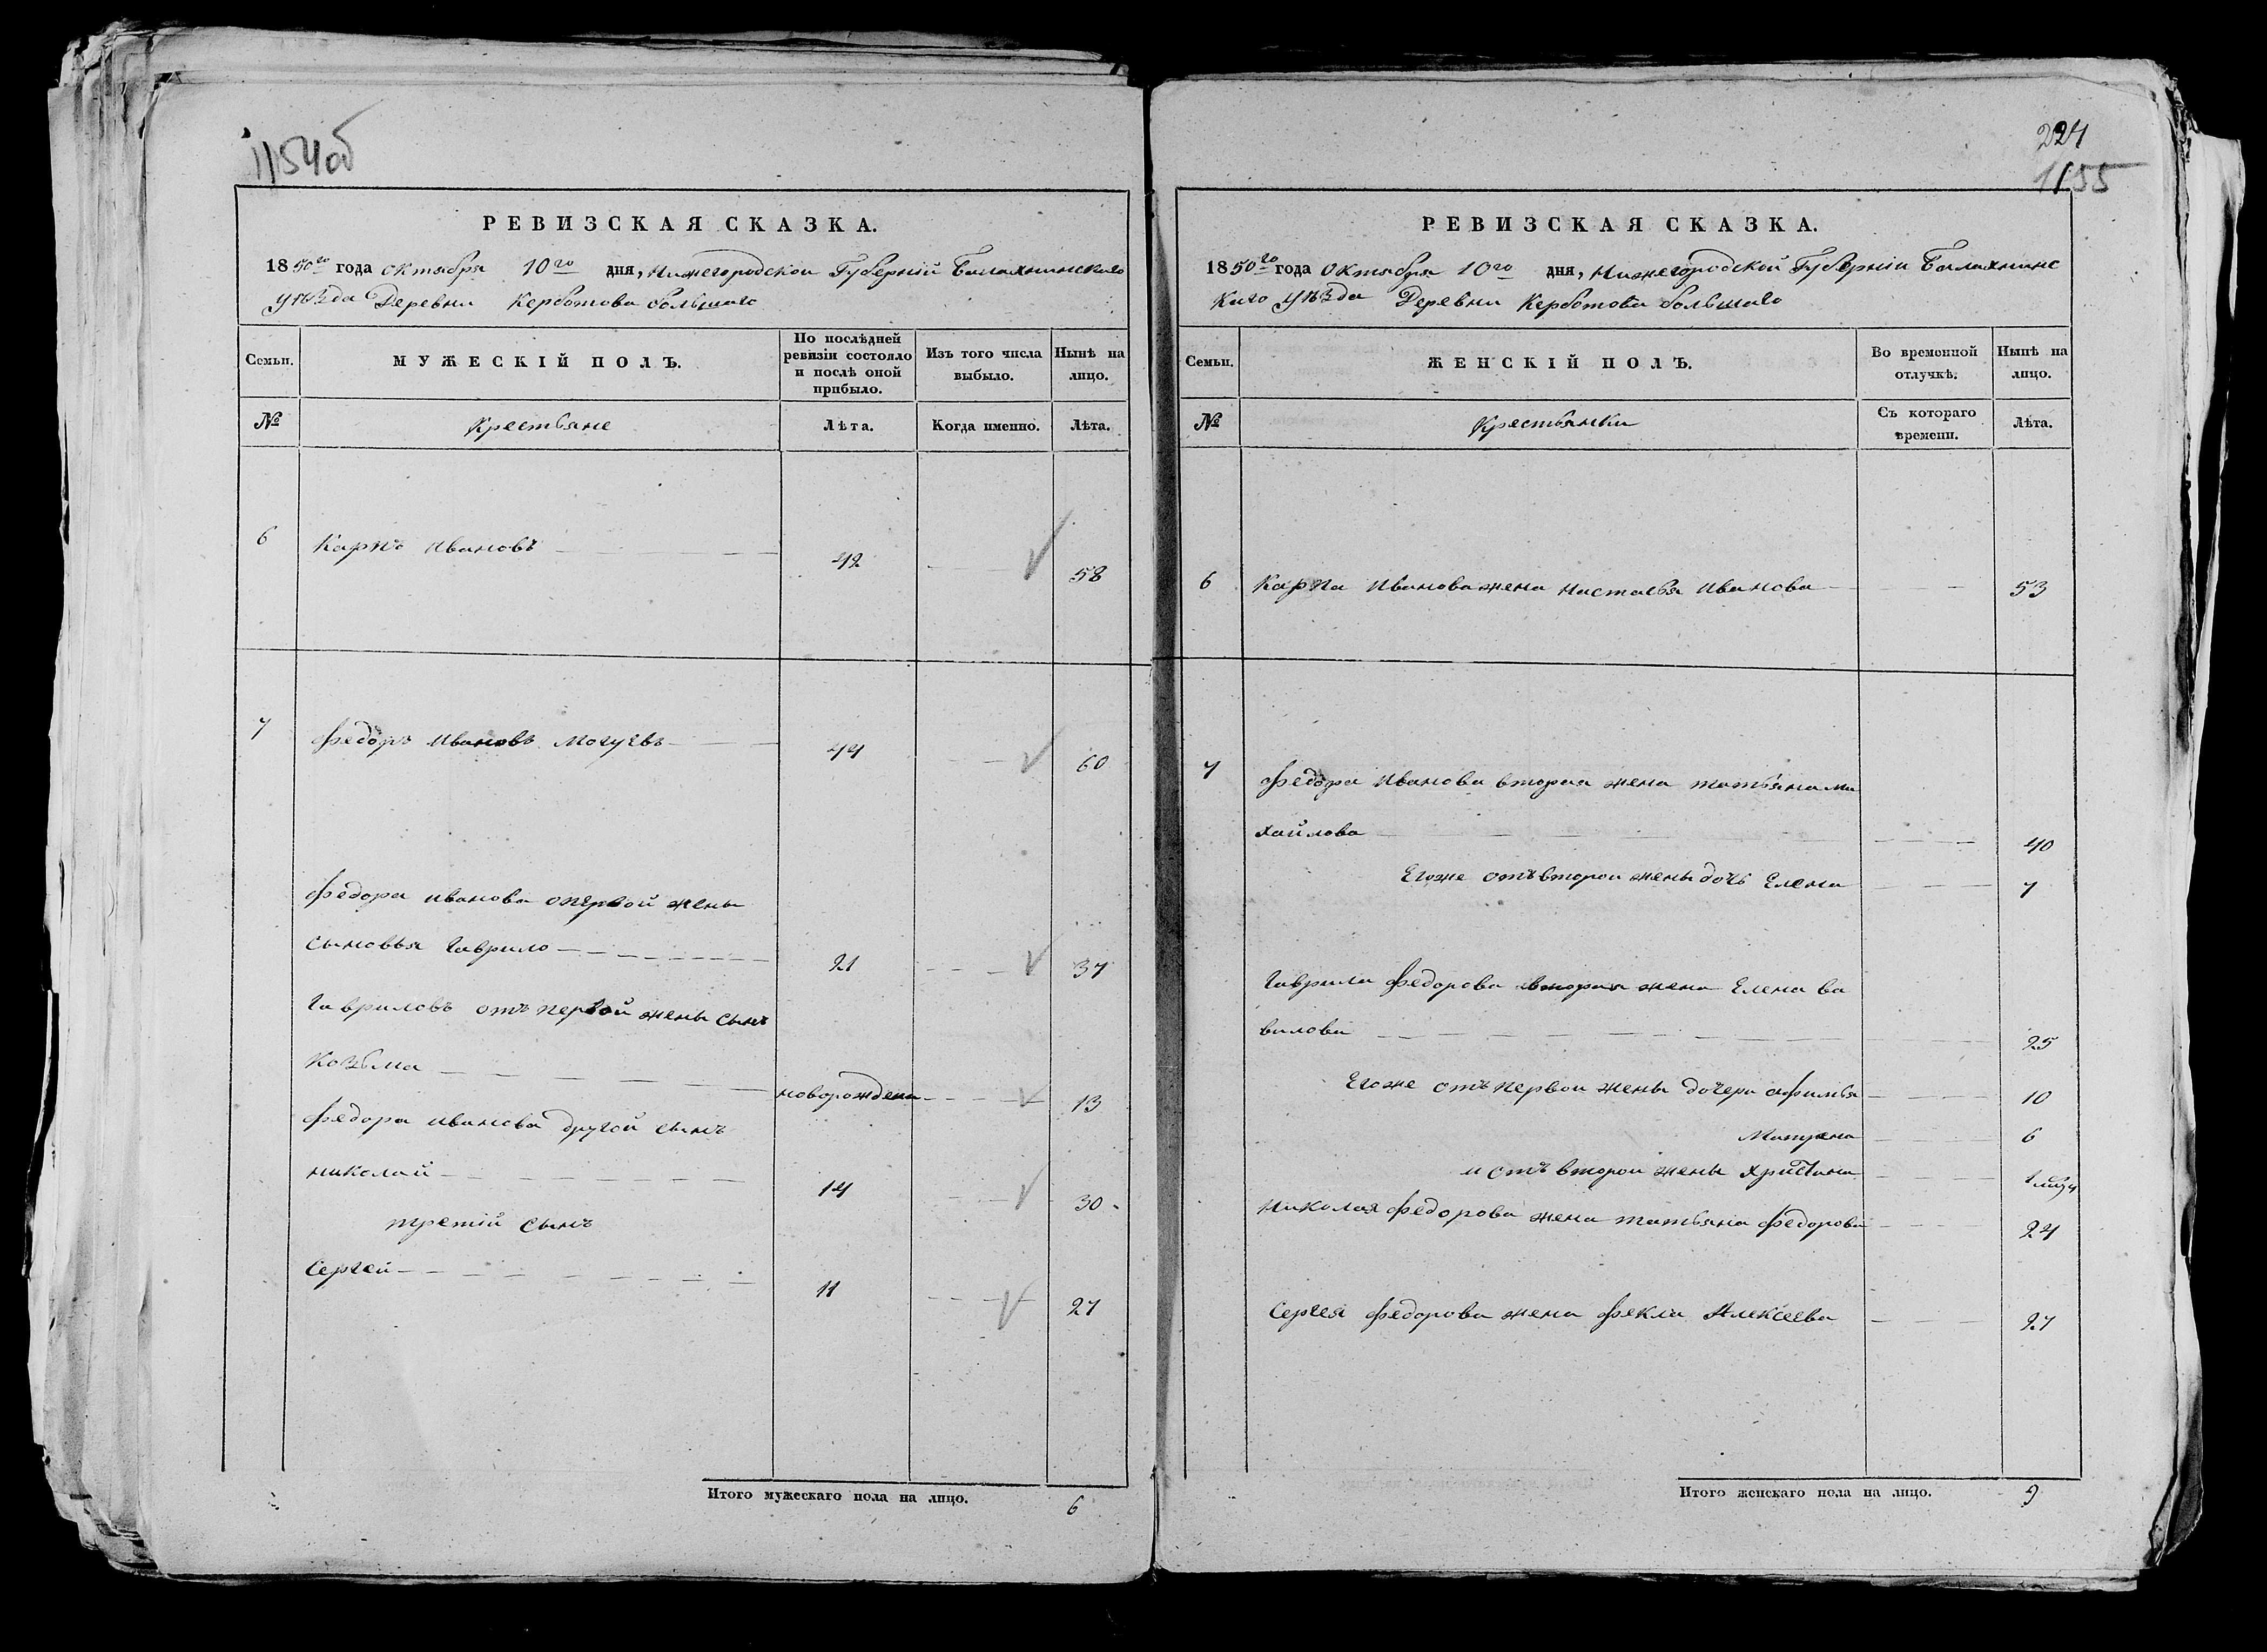 1154об
РЕВИЗСКАЯ СКАЗКА.
1850го года октября 10го дня, Нижегородской Губерній Балахнинскаго
уѣзда Деревни Керботова большаго
Семьи.
МУЖЕСКІЙ ПОЛЪ.
По послѣдней ревизіи состояло и послѣ оной прибыло.
Изъ того числа выбыло.
Нынѣ на лицо.
№
Крестьяне
Лѣта.
Когда именно.
Лѣта.
6 Карпъ Ивановъ 42 58
7 Федоръ Ивановъ Могуевъ 44 60
Федора Иванова опервой жены
сыновья Гаврило 21 37
Гавриловъ отъ первой жены сынъ
Козьма новорожденъ 13
Федора Иванова другой сынъ
Николай 14 30
третій сынъ
Сергей 11 27
Итого мужескаго пола на лицо. 6
224
1155
РЕВИЗСКАЯ СКАЗКА.
1850го года Октября 10го дня, Нижегородской Губерніи Балахнинс
каго уѣзда Деревни Керботова большаго
Семьи.
ЖЕНСКІЙ ПОЛЪ.
Во временной отлучкѣ.
Нынѣ на лицо.
№
Крестьянки
Съ котораго времени.
Лѣта.
6 Карпа Иванова жена Настасья Иванова 53
7 Федора Иванова вторая жена татьяна ми
хайлова 40
Егоже отъ второй жены дочь Елена 7
Гаврила Федорова вторая жена Елена ва
вилова 25
Егоже отъ первой жены дочери афимья 10
Матрена 6
и отъ второй жены Христина 1
Николая Федорова жена татьяна Федорова 24
Сергея Федорова жена Фекла Алексеева 27
Итого женскаго пола на лицо. 9